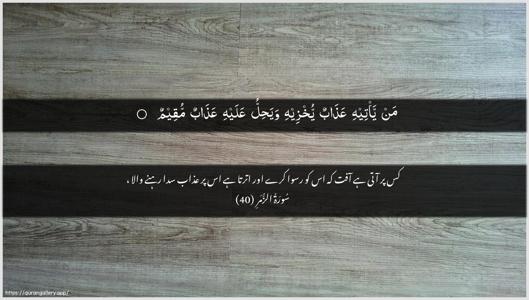 مَنْ يَّأْتِيْهِ عَذَابٌ يُّخْزِيْهِ وَيَحِلُّ عَلَيْهِ عَذَابٌ مُّقِيْمٌ ○
کس پر آتی ہے آفت کہ اس کو رسوا کرے اور اترتا ہے اس پر عذاب سدا رہنے والا ،
سُورَۃُ الزُّمَرِ (40)
https://qurangallery.app/